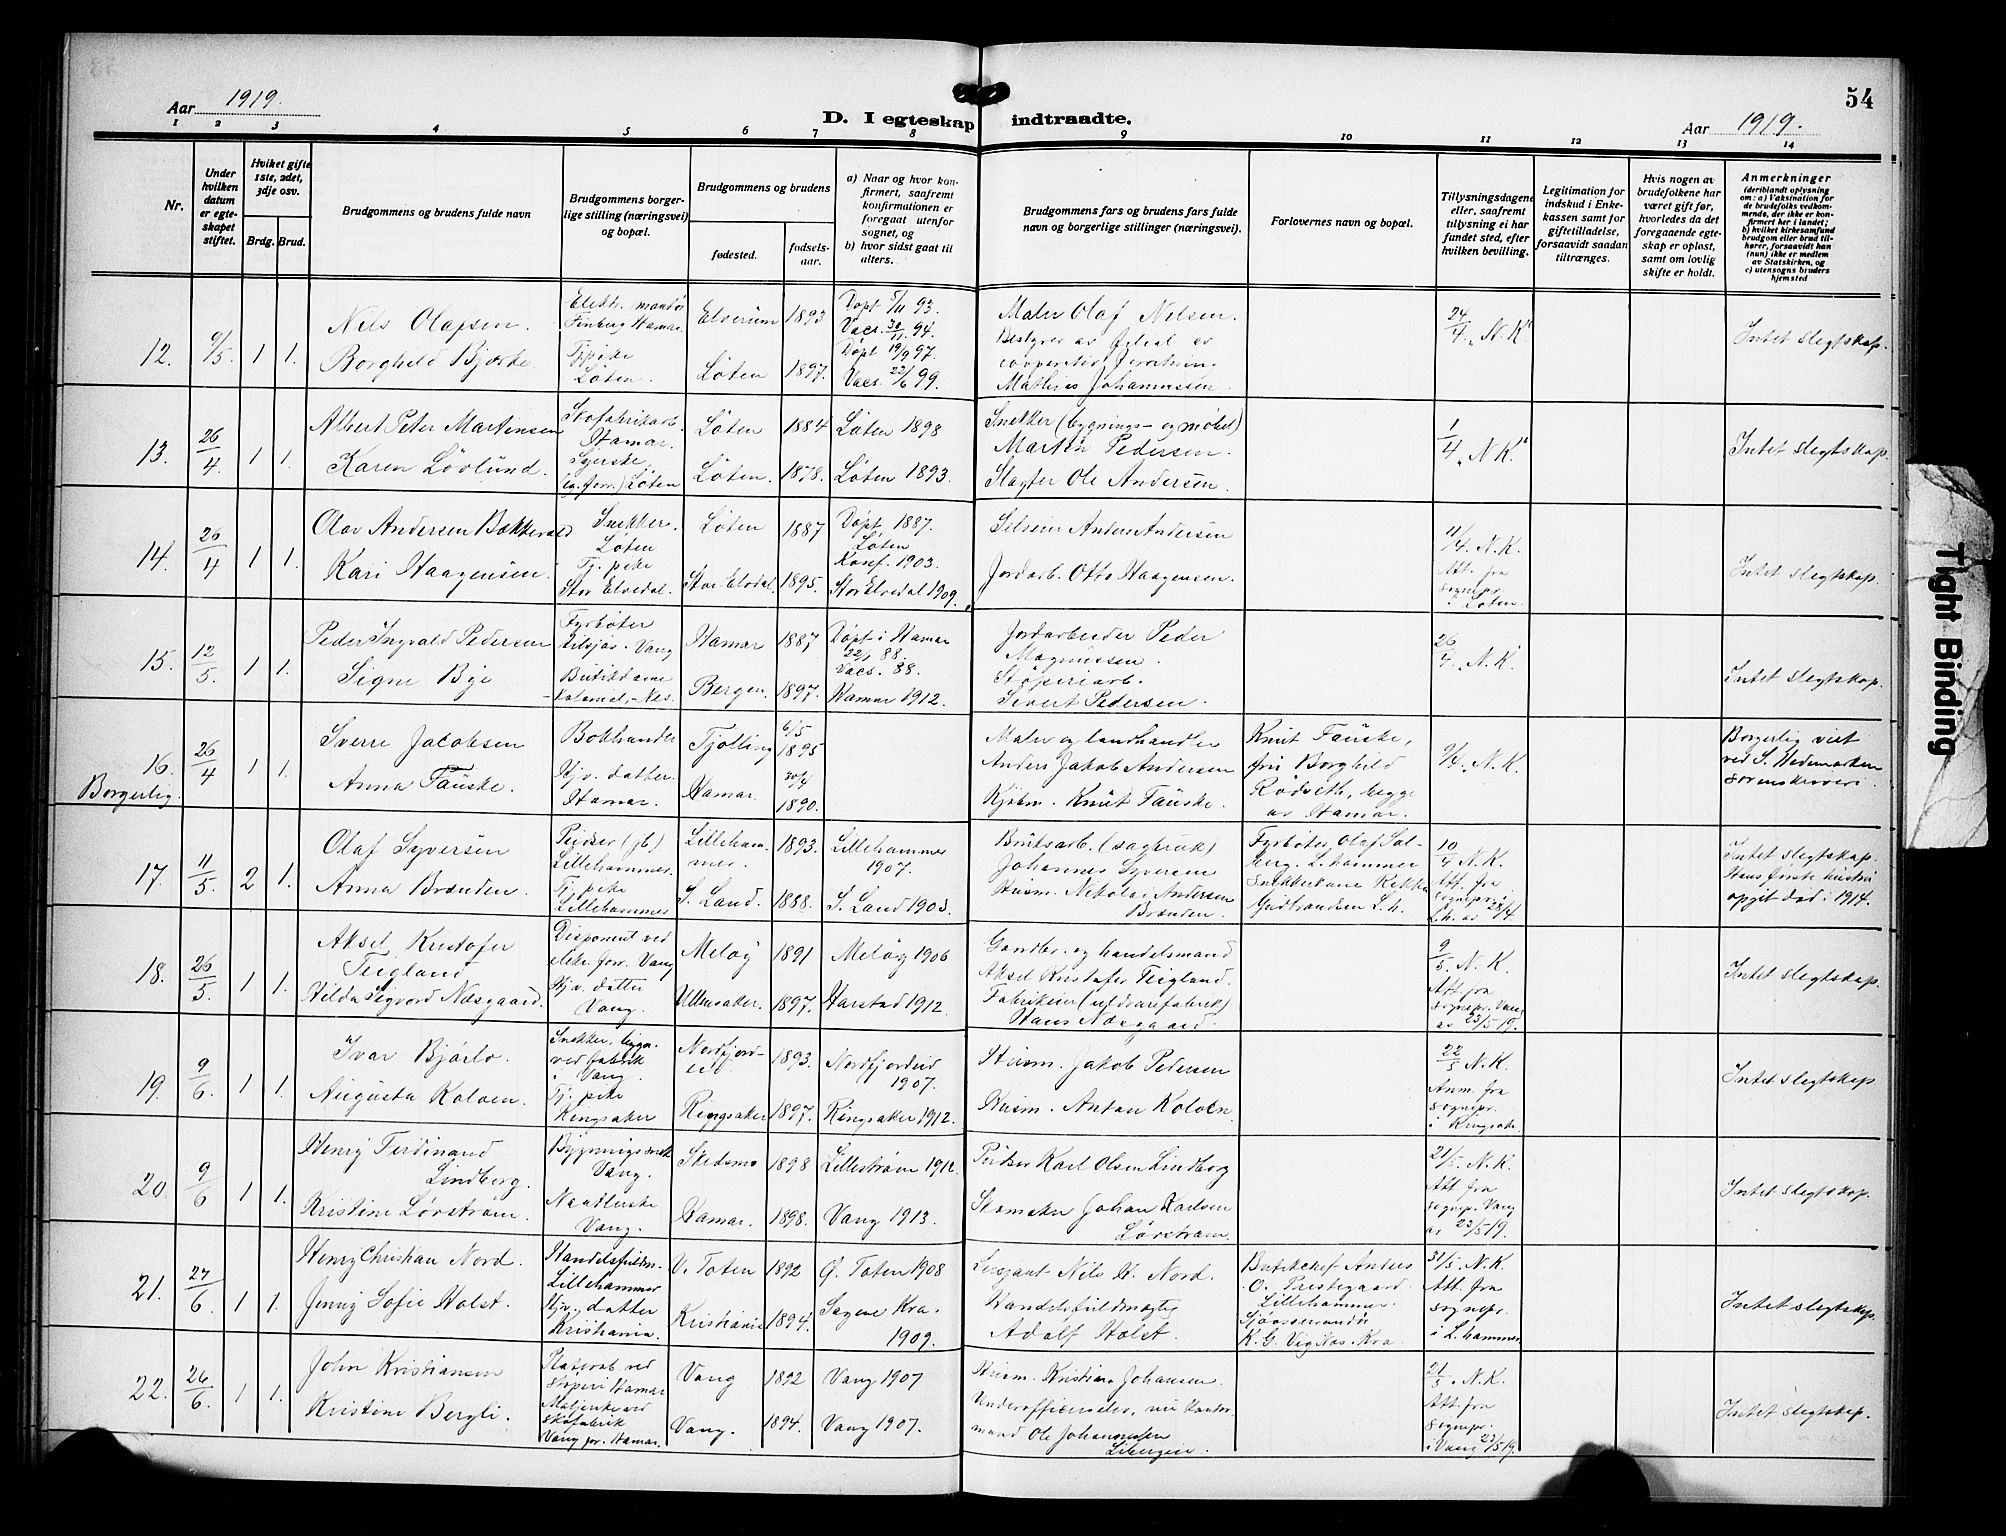 54
Aar 1919.
D. I egteskap indtraadte.
Aar 1919.
1 2 3 4 5 6 7 8 9 10 11 12 13 14
Nr.
Under hvilken datum er egteskapet stiftet.
Hviket gifte 1ste, 2det, 3dje osv.
Brdg. Brud.
Brudgommens og brudens fulde navn
Brudgommens borgerlige stilling (næringsvei) og bopæl.
Brudgommens og brudens
fødested.
fødselsaar.
a) Naar og hvor konfirmert, saafremt konfirmationen er foregaat utenfor sognet, og
b) hvor sidst gaat til alters.
Brudgommens fars og brudens fars fulde navn og borgerlige stillinger (næringsvei).
Forlovernes navn og bopæl.
Tillysningsdagene eller, saafremt tillysning ei har fundet sted, efter hvilken bevilling.
Legitimation for indskud i Enkekassen samt for giftetilladelse, forsaavidt saadan tiltrænges.
Hvis nogen av brudefolkene har været gift før, hvorledes da det foregaaende egteskap er opløst, samt om lovlig skifte er holdt.
Anmerkninger
(deriblandt oplysning om: a) Vaksination for de brudefolks vedkommende, der ikke er konfirmert her i landet; b) hvilket kirkesamfund brudgom eller brud tilhører, forsaavidt han (hun) ikke er medlem av Statskirken, og c) utensogns bruders hjemsted
12. 9/5 1 1.
Nils Olafsen.
Borghild Bjørke.
Elektr. montør
Hamar.
Tj.pike
Løten.
Elverum 1893
Løten 1897.
Døpt 5/11 93.
Vacs. 30/11 94.
Døpt 19/9 97.
Vacs. 22/6 99.
Maler Olaf Nilsen.
Bestyrer av filial av
Mathias Johannessen.
24/4 "N.K."
Intet slegtskap.
13. 26/4 1 1.
Albert Peter Martinsen
Karen Lövlund.
Skofabrikarb.
Hamar.
Syerske
Løten
Løten 1884 Løten 1898
Løten. 1878. Løten 1893.
Snekker (bygnings- og møbel)
Martin Pedersen.
Slagter Ole Andersen.
1/4 "N.K."
Intet slegtskap.
14. 26/4 1 1.
Olav Andersen
Kari Haagensen.
Snekker.
Løten
Tj. pike
Stor Elvedal.
Løten 1887
Døpt 1887.
Løten
Konf. 1903.
Stor-Elvdal. 1895. Stor Elvedal 1909.
Selveier Anders Andersen
Jordarb. Otto Haagensen.
11/4. N.K.
Att. fra
sognepr.
i Løten.
Intet slegtskap.
15. 12/5 1 1.
Peder Ingvald Pedersen
Signe Bye
Fyrbøter
Vang
Butikdame
Kolonial,-Nes.
Hamar 1887
Døpt i Hamar
22/1 88.
Vacs. 88.
Bergen. 1897. Hamar 1912.
Jordarbeider Peder
Magnussen.
Støperiarb.
Sivert Pedersen.
26/4. N.K.
Intet slegtskap.
16. 26/4 1 1.
Borgerlig.
Sverre Jacobsen
Anna Fauske.
Bokhandler
Hjv. datter.
Hamar.
Tjølling 6/5 1895
Hamar. 30/4 1890.
Maler og landhandler
Anders Jakob Andersen
Kjøbm. Knut Fauske.
Knut Fauske,
fru Borghild
Rødseth, begge
av Hamar.
9/4. N.K.
Borgerlig viet
ved S. Hedemarken
sorenskriveri.
17. 11/5. 2 1.
Olaf Syversen
Anna Brænden.
Pudser (jb)
Lillehammer.
Tj. pike
Lillehammer
Lillehammer. 1893. Lillehammer
1907.
S. Land. 1888. S. Land 1903.
Brüksarb. (sagbruk)
Johannes Syversen
Husm. Nikolai Andersen
Brænden.
Fyrbøter Olaf Solberg. L.hammer
Gudbrandsen L.h.
10/4 N.K.
Att. fra
sognepr. i
L.h. av 28/4.
Intet slegtskap.
Hans første hustru
opgit død i 1914.
18. 26/5. 1 1.
Aksel Kristofer
Teigland
Hilda Sigvord Næsgaard.
Disponent ved
elekr. forr. Vang
Hjv. datter
Vang.
Meløy 1891 Meløy 1906
Ullensaker. 1897. Harstad 1912.
Gaardbr. og handelsmand
Aksel Kristofer Teigland.
Fabrikeier (uldvarefabrik)
Hans Næsgaard.
9/5. N.K.
Att. fra
sognepr. Vang
av 23/5 19.
Intet slegtskap.
19. 9/6. 1 1.
Ivar Bjørlo.
Augusta Kolven.
Snekker, bygn.
ved fabrik
i Vang.
Tj. pike
Ringsaker
Nordfjordeid 1893. Nordfjordeid
1907.
Ringsaker 1897. Ringsaker 1912.
Husm. Jakob Pedersen
Husm. Anton Kolven.
22/5 N.K.
Anm. fra
sognepr.
i Ringsaker.
Intet slegtskap
20. 9/6 1 1.
Henry Ferdinand
Lindberg.
Kristine Lørstrøm.
Bygningssnek.
Vang.
Naatlerske
Vang.
Skedsmo 1898 Lillestrøm 1912.
Hamar. 1898. Vang 1913.
Pudser Karl Olsen Lindberg
Skomaker Johan Karlsen
Lørstrøm.
21/5. N.K.
Att. fra
sognepr. Vang
av 23/5 19.
Intet slegtskap.
21. 27/6. 1 1.
Henry Christian Nord.
Jenny Sofie Holst.
Handelsfuldm.
Lillehammer
Hjv. datter
Kristiania.
V. Toten 1892 Ø. Toten 1908
Kristiania 1894. Sagene Kra.
1909.
Sersjant Nils H. Nord.
Handelsfuldmægtig
Adolf Holst.
Butikchef Anders
O. Prestegaard
Lillehammer.
K. G. Vignes. Kra.
31/5. N.K.
Att. fra
sognepr.
i L.hammer
Intet slegtskap.
22. 26/6. 1 1.
John Kristiansen
Kristine Bergli.
Platearb. ved
støperi Hamar
ved
skofabrik
Vang pr. Hamar.
Vang 1892 Vang 1907
Vang. 1894. Vang 1907.
Husm. Kristian Johansen.
Underofficerselev, nu kantormand Ole Johannessen
21/5. N.K.
Att. fra
sognepr.
i Vang 23/5 19.
Intet slegtskap.
Tight Binding